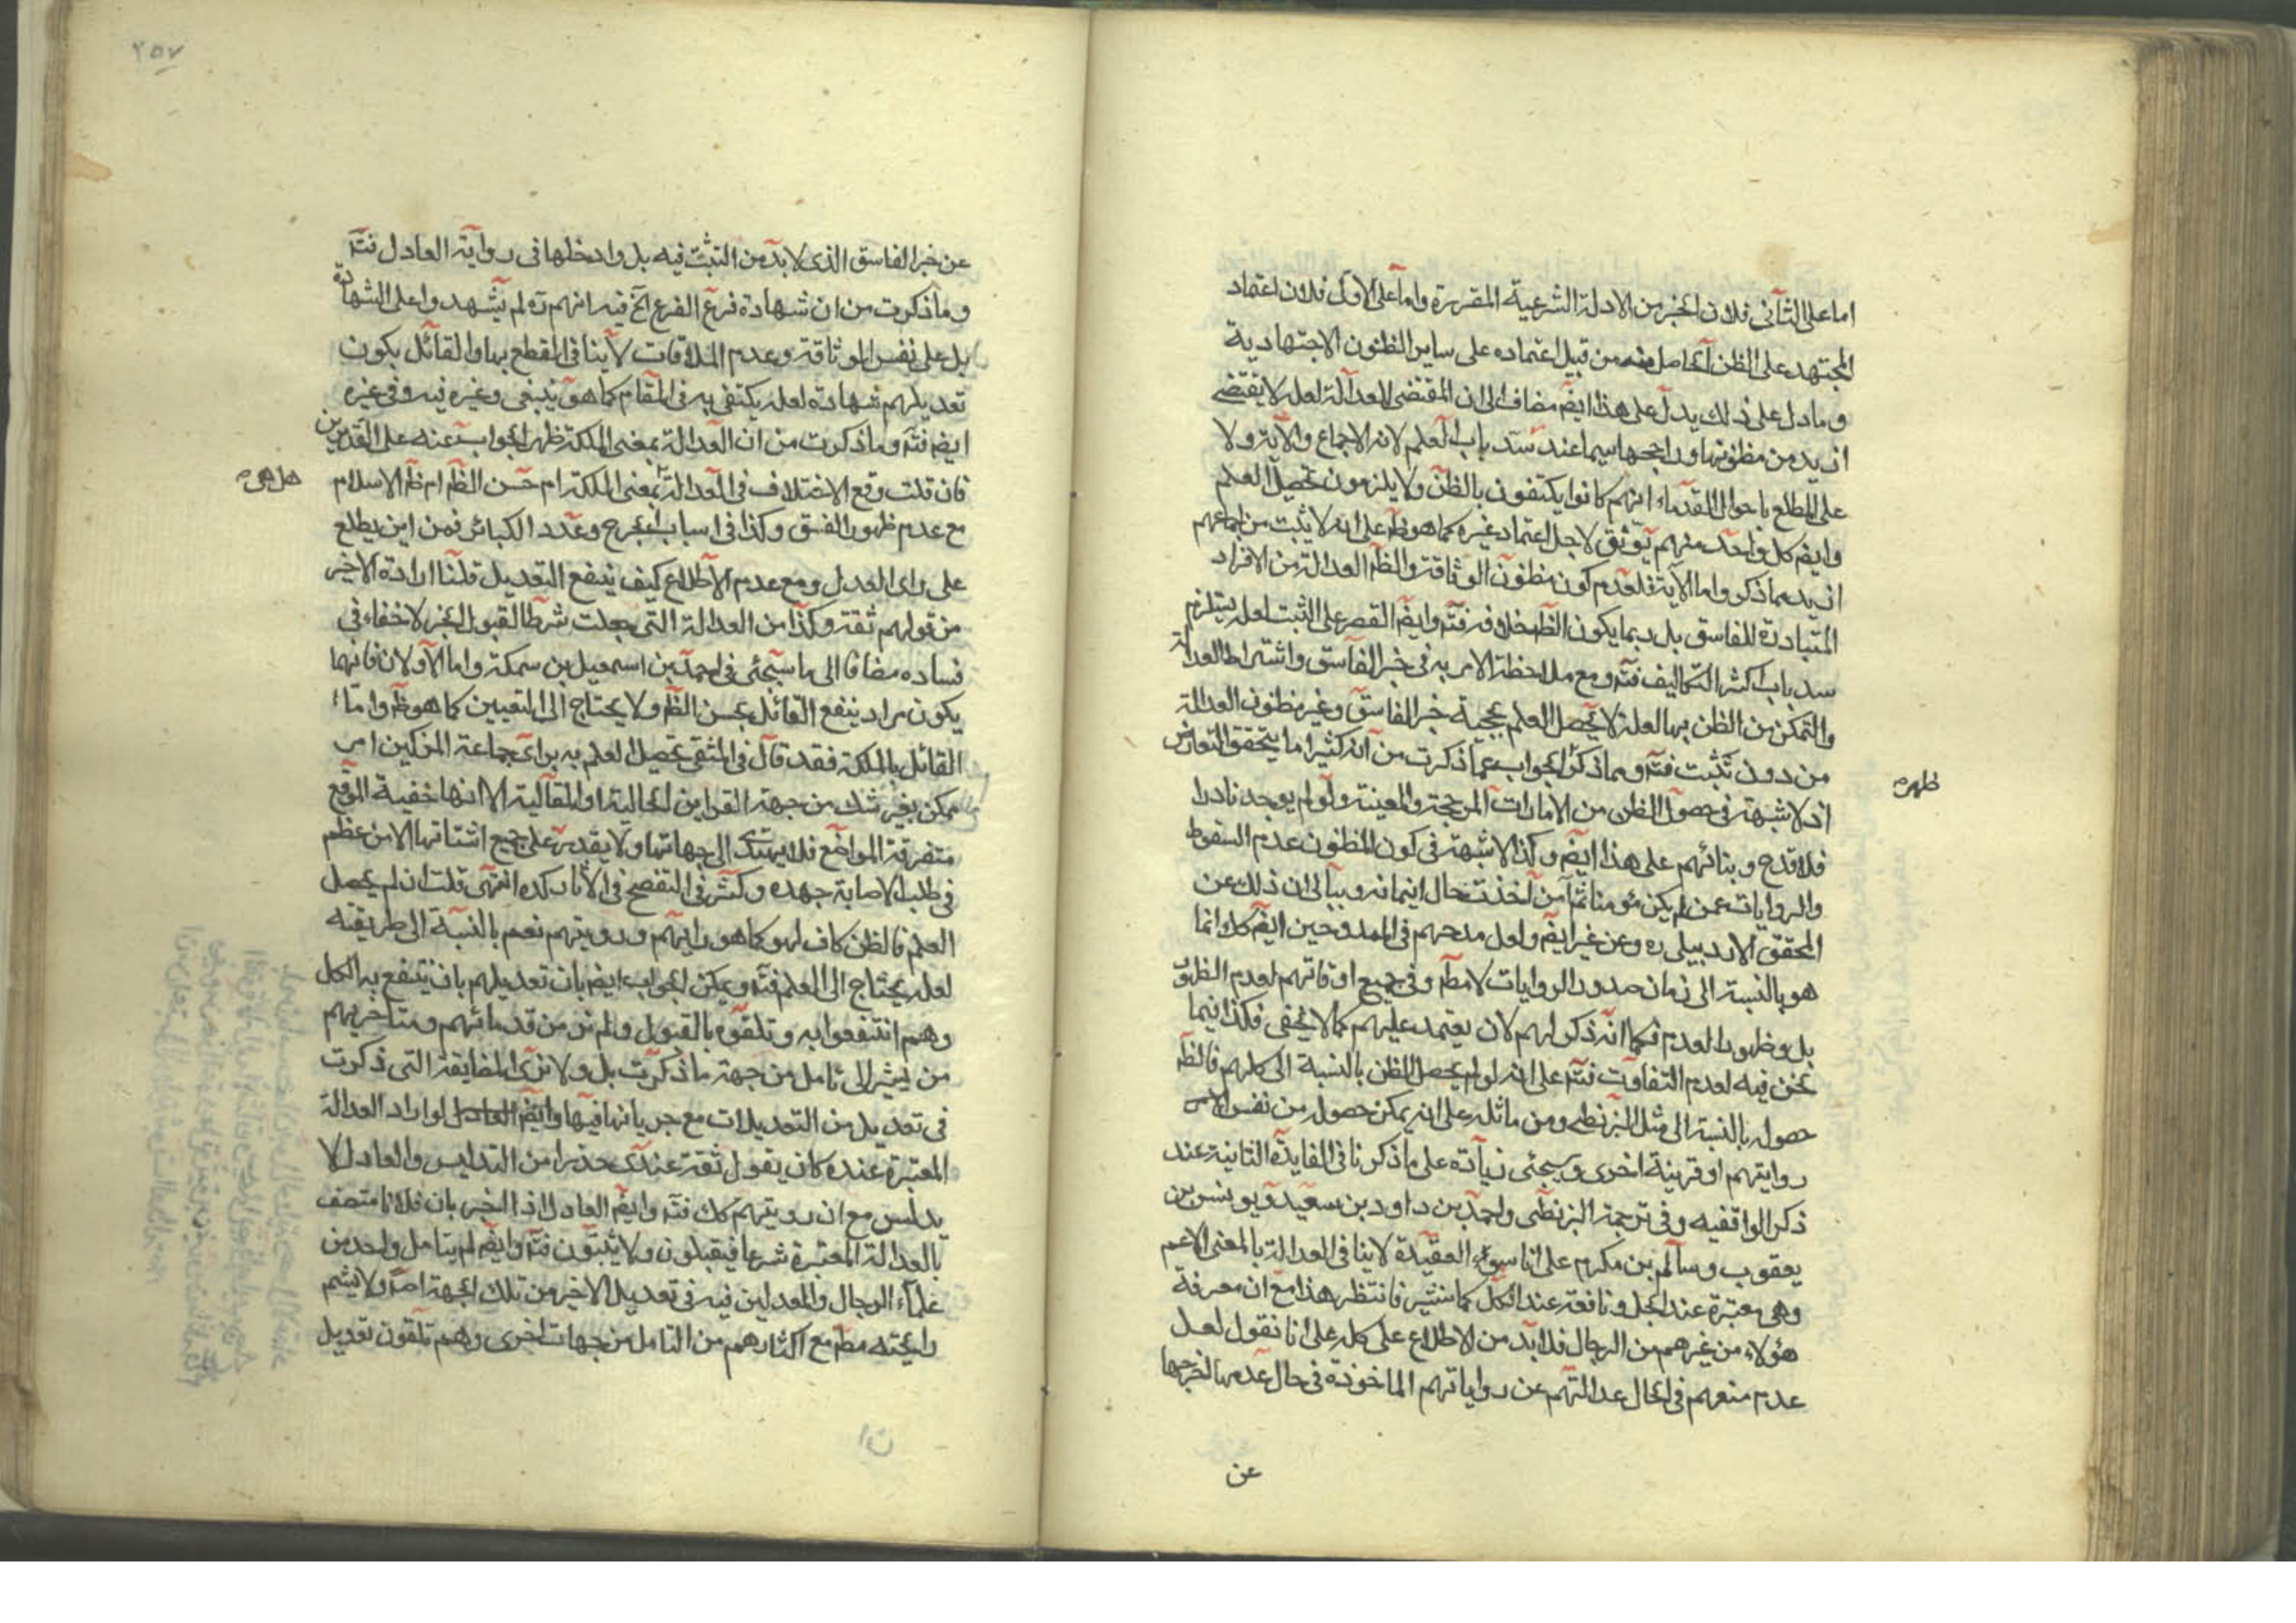 اما على الثانى فلان الخبر من الادلة الشرعية المقررة واما على الاول فلان اعتماد
المجتهد على الظن الحاصل منه من قبيل اعتماده على ساير الظنون الاجتهادية
وما دل على ذلك يدل على هذا ايضم مضافا الى ان المقتضى للعدالة لعله لا يقتضى
ازيد من مظنونها وراجحها سيما عند سد باب العلم لانه الاجماع والآية ولا
على المطلع باحوال القدماء انهم كانوا يكتفون بالظن ولا يلزمون تحصيل العلم
وايضم كل واحد منهم يوثق لاجل اعتماد غيره كما هو ظم على انه لا يثبت من اجماعهم
ازيد مما ذكر واما الآية فلعدم كون مظنون الوثاقة والظم العدالة من الافراد
المتبادرة للفاسق بل ربما يكون الظم خلافه فتم وايضم القصر على التثبت لعله يستلزم
سد باب اكثر التكاليف فتم ومع ملاحظة الامر به فى خبر الفاسق واشتراط العدالة
والتمكن من الظن بها لعله لا يحصل العلم بحجية خبر الفاسق وغير مظنون العدالة
من دون تثبت فتم ومما ذكر الجواب عما ذكرت من انه كثيرا ما يتحقق التعارض
ظهر
اذ لا شبهة فى حصول الظن من الامارات المرجحة والمعينة ولو لم يوجد نادرا
فلا قدح وبنائهم على هذا ايضم وكذا لا شبهة فى كون المظنون عدم السقوط
والروايات عمن لم يكن مؤمنا ثم آمن اخذت حال ايمانه وببالى ان ذلك عن
المحقق الاردبيلى ره وعن غيره ايضم ولعل مدحهم فى الممدوحين ايضم كك انما
هو بالنسبة الى زمان صدور الروايات لا مطم وفى جميع اوقاتهم لعدم الظهور
بل وظهور العدم فكما انه ذكر لهم لان يعتمد عليهم كما لا يخفى فكذا فيما
نحن فيه لعدم التفاوت فتم على انه لو لم يحصل الظن بالنسبة الى كلهم فالظم
حصوله بالنسبة الى مثل البزنطى ومن ماثله على انه يمكن حصوله من نفس الامر
روايتهم او قرينة اخرى وسيجئى زيادة على ما ذكرنا فى الفايدة الثانية عند
ذكر الواقفيه وفى ترجمة البزنطى واحمد بن داود بن سعيد ويونس بن
يعقوب وسالم بن مكرم على انا سوء العقيدة لا ينافى العدالة بالمعنى الاعم
وهى معتبرة عند الجل ونافعة عند الكل كما سنشير فانتظر هذا مع ان معرفة
هؤلاء من غيرهم من الرجال فلا بد من الاطلاع على كله على انا نقول لعل
عدم منعهم فى الحال عدالتهم عن رواياتهم الماخوذة فى حال عدمها لخرجها
عن
٢٥٧
عن خبر الفاسق الذى لا بد من التثبت فيه بل وادخلها فى رواية العادل فتم
وما ذكرت من ان شهادة فرع الفرع الخ فيه انهم ره لم يشهدوا على الشهادة
بل على نفس الوثاقة وعدم الملاقات لا ينافى القطع بها والقائل بكون
تعديلهم شهادة لعله يكتفى به فى المقام كما هو ينبغى وغيره فيه وفى غيره
ايضم فتم وما ذكرت من ان العدالة بمعنى الملكة ظهر الجواب عنه على التقديرين
فان قلت وقع الاختلاف فى العدالة بمعنى الملكة ام حسن الظم ام ظم الاسلام
هل هى
مع عدم ظهور الفسق وكذا فى اسباب الجرح وعدد الكبائر فمن اين يطلع
على راى المعدل ومع عدم الاطلاع كيف ينفع التعديل قلنا ارادة الاخير
من قولهم ثقة وكذا من العدالة التى جعلت شرطا لقبول الخبر لا خفاء فى
فساده مضافا الى ما سيجئى فى احمد بن اسمعيل بن سمكة واما الاولان فانهما
يكون مراد ينفع القائل بحسن الظم ولا يحتاج الى التعيين كما هو ظم واما
القائل بالملكة فقد قال فى المنتقى تحصيل العلم به براى جماعة المزكين امر
ممكن بغير شك من جهة القراين الحالية او المقالية الا انها خفية المواقع
متفرقة المواضع فلا يهتدى الى جهاتها ولا يقدر على جميع اشتاتها الا من عظم
فى طلب الاصابة جهده وكثر فى التفصح فى الآثار كده انتهى قلت ان لم يحصل
العلم فالظن كاف لهو كما هو رايهم ورويتهم نعم بالنسبة الى طريقته
لعله يحتاج الى العلم فتم ويمكن الجواب ايضم بان تعديلهم بان ينتفع به الكل
وهم انتفعوا به وتلقوه بالقبول ولم نر من قدمائهم ومتاخريهم
من يشير الى تامل من جهة ما ذكرت بل ولا نرى المضايقة التى ذكرت
فى تعديل من التعديلات مع جريانها فيها وايضم لو اراد العدالة
المعتبرة عنده كان يقول ثقة عندى حذرا من التدليس والعادل لا
يدلس مع ان رويتهم كك فتم وايضم العادل اذا اخبر بان فلانا متصف
بالعدالة المعتبرة شرعا فيقبلون ولا يثبتون فتم وايضم لم يتامل واحد من
علماء الرجال والمعدلين فيه فى تعديل الاخير من تلك الجهة اصلا ولا يشم
رايحته مطم مع اكثارهم من التامل من جهات اخرى وهم تلقون تعديل